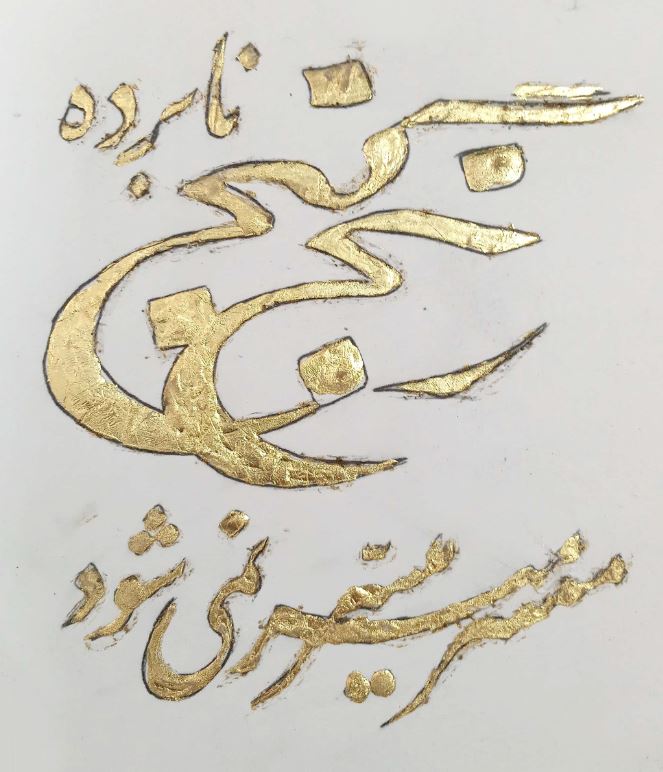 نابرده
رنج
گنج
میسر نمی شود